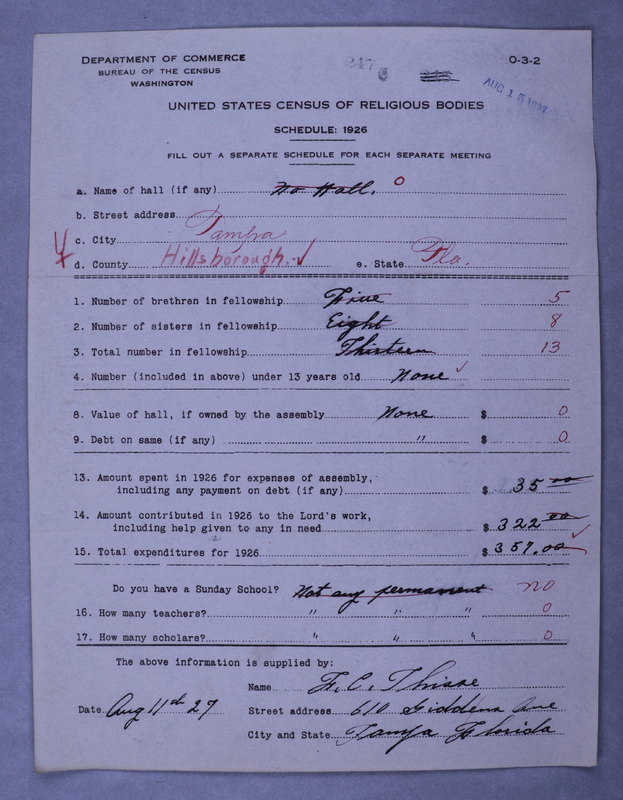 DEPARTMENT OF COMMERCE
BUREAU OF THE CENSUS
WASHINGTON
247
O-3-2
AUG 15 1927
UNITED STATES CENSUS OF RELIGIOUS BODIES
SCHEDULE: 1926
FILL OUT A SEPARATE SCHEDULE FOR EACH SEPARATE MEETING
a. Name of hall (if any) No Hall. 0
b. Street address
c. City Tampa
d. County Hillsborough. ✓ e. State Fla.
1. Number of brethren in fellowship Five 5
2. Number of sisters in fellowship Eight 8
3. Total number in fellowship Thirteen 13
4. Number (included in above) under 13 years old None ✓
8. Value of hall, if owned by the assembly None $ 0
9. Debt on same (if any) " $ 0
13. Amount spent in 1926 for expenses of assembly,
including any payment on debt (if any) $ 35 00
14. Amount contributed in 1926 to the Lord's work,
including help given to any in need $ 322 00
15. Total expenditures for 1926 $ 357.00 ✓
Do you have a Sunday School? Not any permanent no
16. How many teachers? " " " 0
17. How many scholars? " " " 0
The above information is supplied by:
Name F. C.
Date Aug 11th 27 Street address 610 Giddens Ave
City and State Tampa Florida